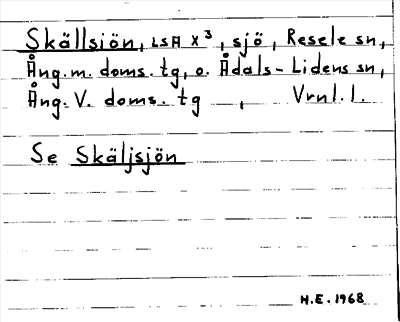 Skällsjön, LSA X³, sjö, Resele sn,
Ång. m. doms. tg, o. Ådals-Lidens sn,
Ång. V. doms. tg , Vrnl. l.
Se Skäljsjön
H.E. 1968